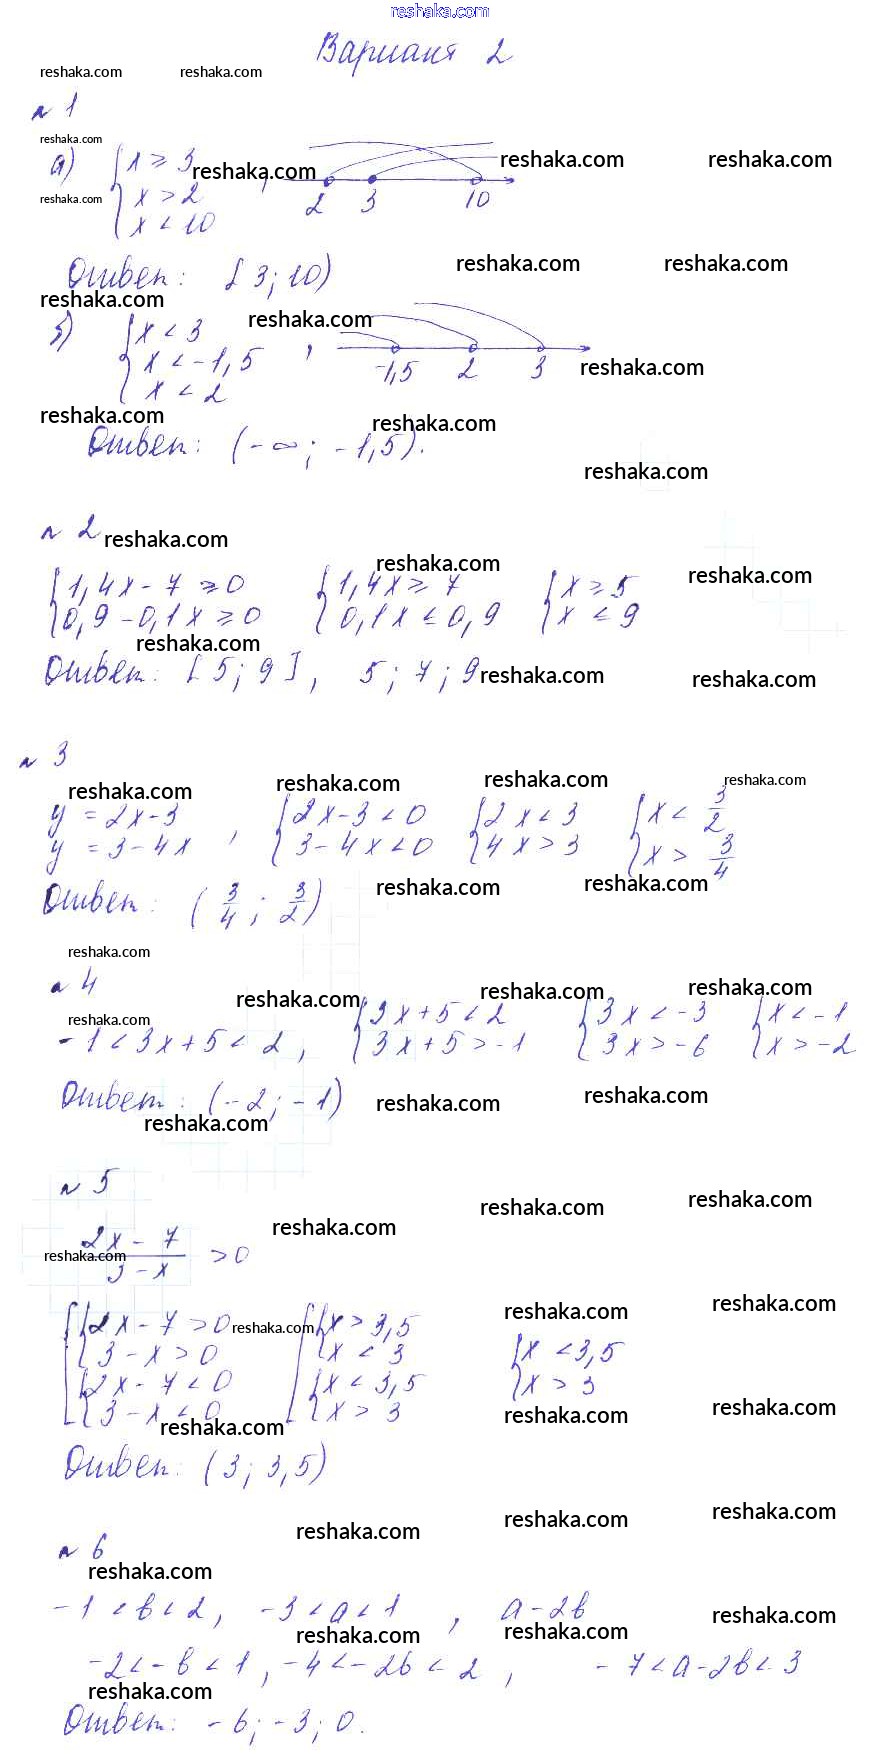 reshaka.com
Вариант 2
reshaka.com reshaka.com
n 1
reshaka.com
а) { x ≥ 3 reshaka.com , reshaka.com reshaka.com
reshaka.com x > 2 2 3 10
x < 10
Ответ: [3; 10) reshaka.com reshaka.com
reshaka.com
б) { x < 3 reshaka.com
x < -1,5 , -1,5 2 3 reshaka.com
x < 2
reshaka.com reshaka.com
Ответ: (-∞; -1,5).
reshaka.com
n 2 reshaka.com
reshaka.com reshaka.com
{ 1,4x - 7 ≥ 0 { 1,4x ≥ 7 { x ≥ 5
0,9 - 0,1x ≥ 0 0,1x ≤ 0,9 x ≤ 9
reshaka.com
Ответ: [5; 9], 5; 7; 9 reshaka.com reshaka.com
n 3
reshaka.com reshaka.com reshaka.com reshaka.com
y = 2x - 3 , { 2x - 3 < 0 { 2x < 3 { x < 3/2
y = 3 - 4x 3 - 4x < 0 4x > 3 x > 3/4
reshaka.com reshaka.com
Ответ: (3/4; 3/2)
reshaka.com
n 4
reshaka.com reshaka.com reshaka.com
reshaka.com { 3x + 5 < 2 { 3x < -3 { x < -1
-1 < 3x + 5 < 2, 3x + 5 > -1 3x > -6 x > -2
Ответ: (-2; -1) reshaka.com reshaka.com
reshaka.com
n 5
reshaka.com reshaka.com
reshaka.com
2x - 7
reshaka.com > 0
3 - x
reshaka.com reshaka.com
[ { 2x - 7 > 0 reshaka.com [ { x > 3,5
3 - x > 0 x < 3 { x < 3,5
{ 2x - 7 < 0 { x < 3,5 x > 3
3 - x < 0 x > 3 reshaka.com reshaka.com
reshaka.com
Ответ: (3; 3,5)
reshaka.com reshaka.com reshaka.com
n 6
reshaka.com
-1 < b < 2, -3 < a < 1 , a - 2b reshaka.com
reshaka.com reshaka.com
-2 < -b < 1, -4 < -2b < 2 , -7 < a - 2b < 3
reshaka.com
Ответ: -6; -3; 0.